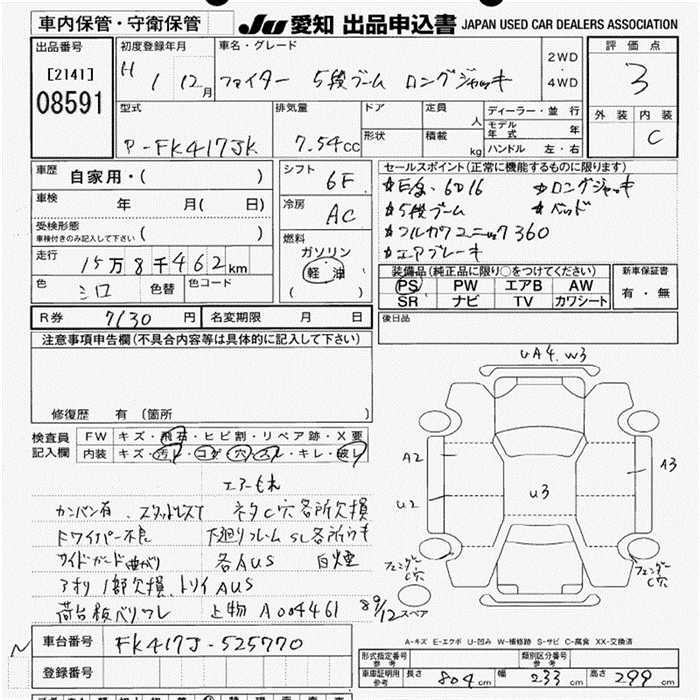 車内保管・守衛保管
JU 愛知 出品申込書 JAPAN USED CAR DEALERS ASSOCIATION
出品番号
[2141]
08591
初度登録年月
H 1 12月
車名・グレード
ファイター 5段ブーム ロングジャッキ
2WD
・
4WD
評価点
3
外装 内装
C
型式
P-FK417JK
排気量
7.54cc
ドア
形状
定員
人
積載
kg
ディーラー・並行
モデル年式 年
ハンドル 左・右
車歴
自家用・( )
車検
年 月( 日)
受検形態
車検付きのみ記入して下さい ( )
走行
15万8千462km
色
シロ
色替
色コード
シフト
6F
冷房
AC
燃料
ガソリン
軽油
( )
セールスポイント(正常に機能するものに限ります)
☆E/g. 6D16 ☆ロングジャッキ
☆5段ブーム ☆ベッド
☆フルカワユニック360
☆エアブレーキ
装備品(純正品に限り○をつけてください)
PS PW エアB AW
SR ナビ TV カワシート
新車保証書
有・無
R券 7130 円
名変期限 月 日
後日品
注意事項申告欄(不具合内容等は具体的に記入して下さい)
修復歴 有 (箇所 )
検査員
記入欄
FW キズ・飛石・ヒビ割・リペア跡・X要
内装 キズ・汚れ・コゲ・穴・スレ・キレ・破レ
エアーもれ
カンバン有. スタットレス1 ネタC穴各所欠損
Fワイパー不良 下廻りフレームSC各所ウキ
サイドガード曲がり 各AUS 白煙
アオリ1部欠損、トリイAUS
荷台板ベリフレ 上物 A004461 89/12
UA4. W3
A2
U2
U3
A3
フェンダーC穴
フェンダーC穴
スペア
A-キズ E-エクボ U-凹み W-補修跡 S-サビ C-腐食 XX-交換済
車台番号 FK417J-525770
登録番号
N
形式指定番号
参考
類別区分番号
参考
車庫証明用
参考
長さ 804 cm 幅 233 cm 高さ 299 cm